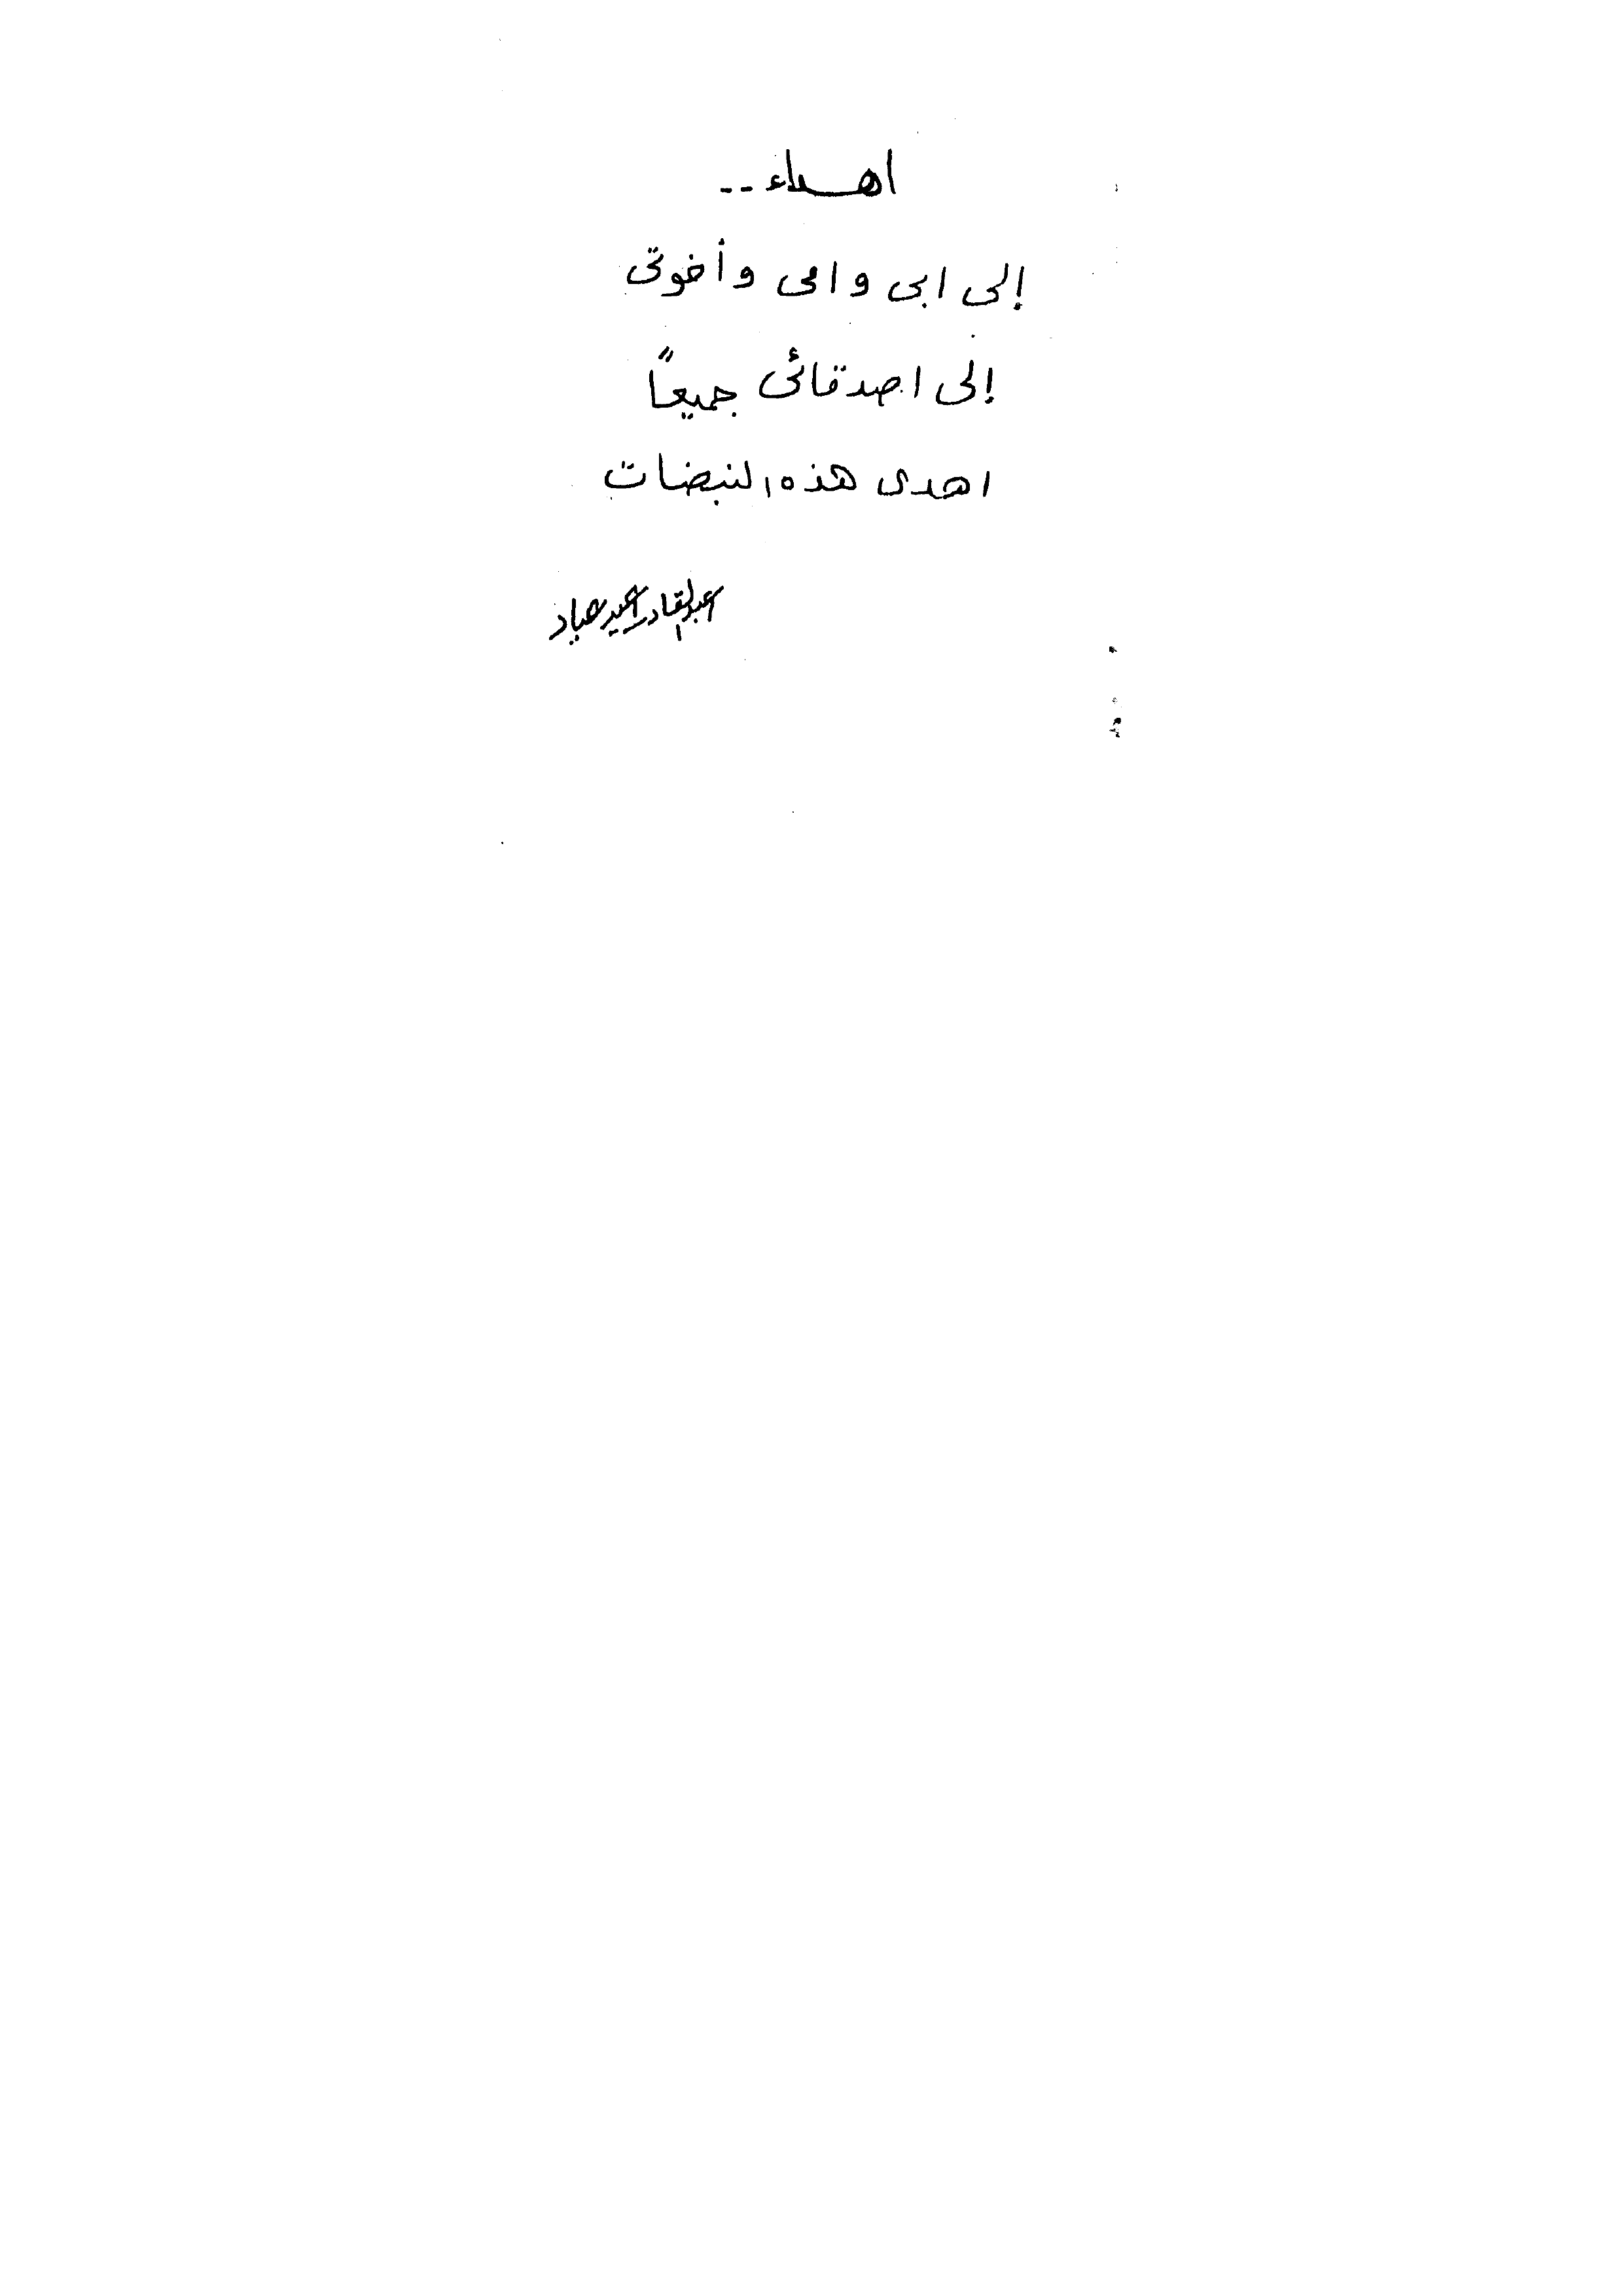 اهداء --
إلى ابى وامى وأخوتى
إلى اصدقائى جميعاً
اهدى هذه النبضات
عبدالقادر